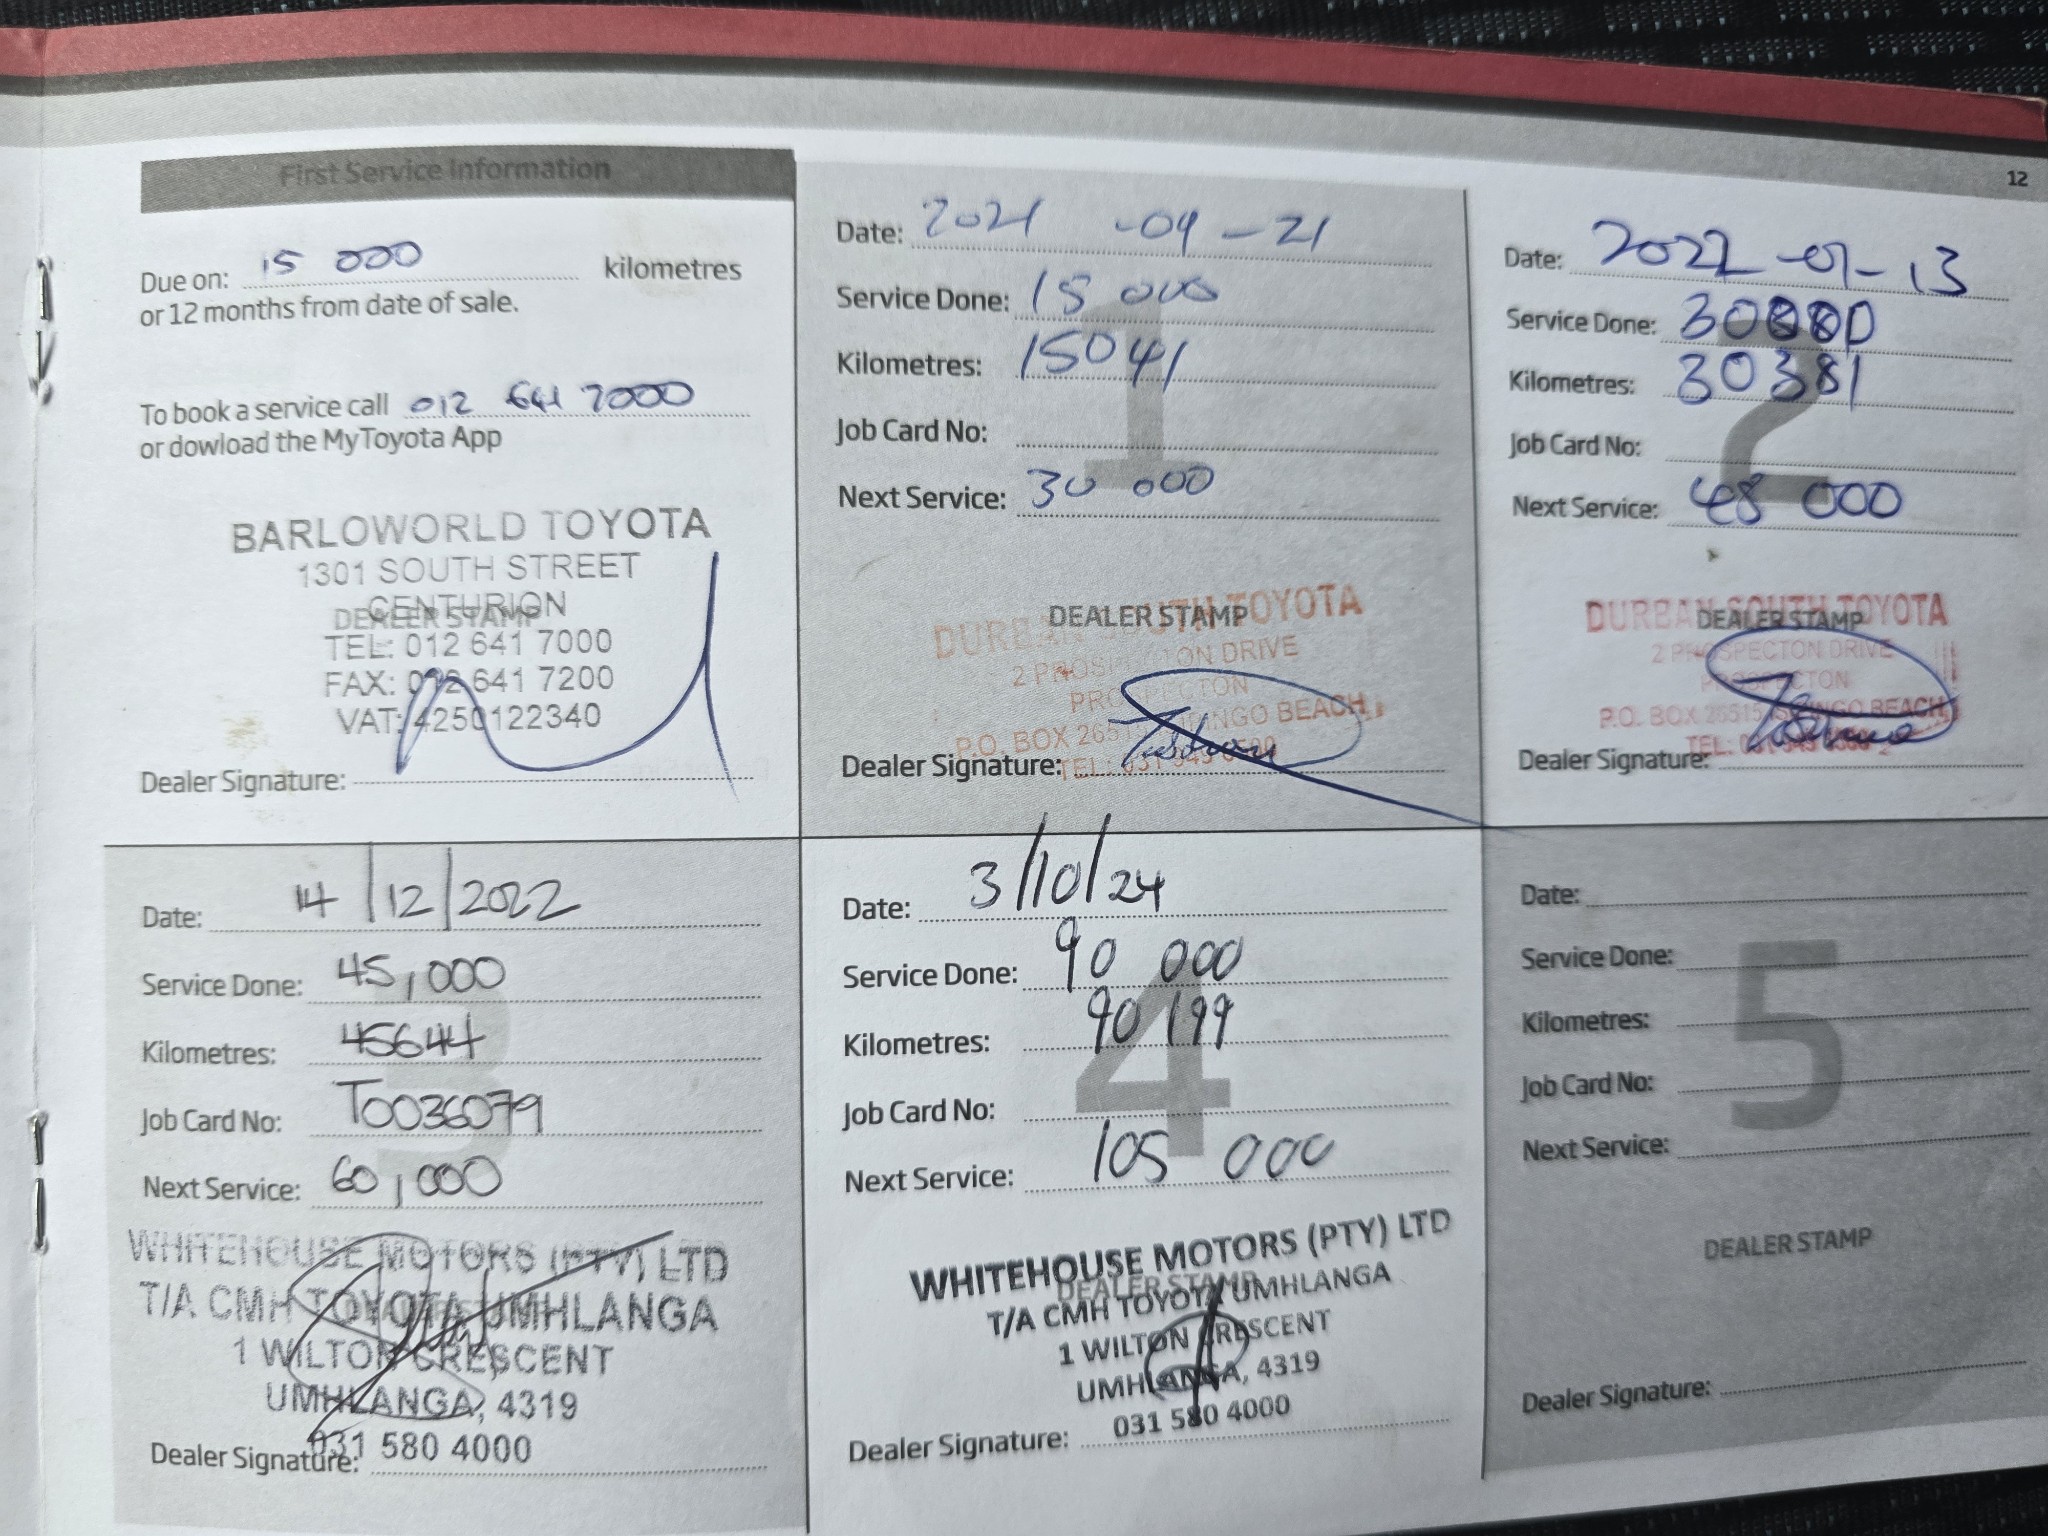 12
First Service Information
Due on: 15 000 kilometres
or 12 months from date of sale.
To book a service call 012 641 7000
or dowload the MyToyota App
BARLOWORLD TOYOTA
1301 SOUTH STREET
CENTURION
DEALER STAMP
TEL: 012 641 7000
FAX: 012 641 7200
VAT: 4250122340
Dealer Signature:
Date: 2021 -09 - 21
Service Done: 15 000
Kilometres: 15041
Job Card No:
Next Service: 30 000
1
DURBAN SOUTH TOYOTA
DEALER STAMP
2 PROSPECTON DRIVE
PROSPECTON
P.O. BOX 26515 ISIPINGO BEACH
TEL: 031
Dealer Signature:
Date: 2022 -07- 13
Service Done: 30000
Kilometres: 30381
Job Card No:
Next Service: 48 000
2
DURBAN SOUTH TOYOTA
DEALER STAMP
2 PROSPECTON DRIVE
PROSPECTON
P.O. BOX 26515 ISIPINGO BEACH
TEL: 031
Dealer Signature:
Date: 14/12/2022
Service Done: 45,000
Kilometres: 45644
Job Card No: T0036079
Next Service: 60,000
3
WHITEHOUSE MOTORS (PTY) LTD
T/A CMH TOYOTA UMHLANGA
1 WILTON CRESCENT
UMHLANGA, 4319
031 580 4000
Dealer Signature:
Date: 3/10/24
Service Done: 90 000
Kilometres: 90 199
Job Card No:
Next Service: 105 000
4
WHITEHOUSE MOTORS (PTY) LTD
DEALER STAMP
T/A CMH TOYOTA UMHLANGA
1 WILTON CRESCENT
UMHLANGA, 4319
031 580 4000
Dealer Signature:
Date:
Service Done:
Kilometres:
Job Card No:
Next Service:
5
DEALER STAMP
Dealer Signature: